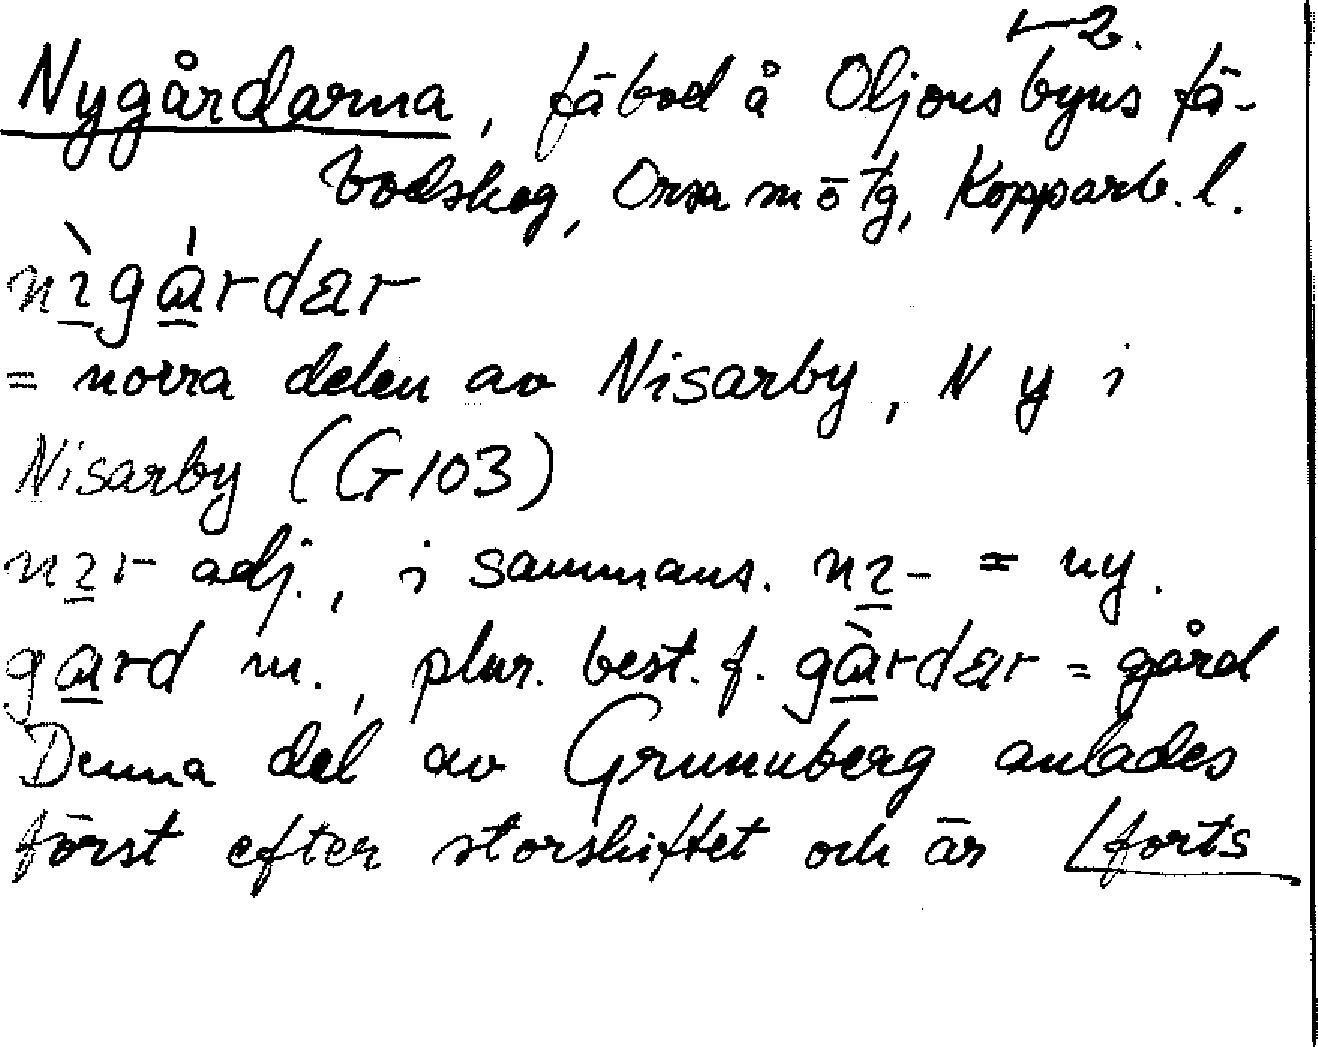 1-2.
Nygårdarna, fäbod å Oljonsbyns fä-
bodskog, Orsa sn ö tg, Kopparb. l.
nɪ̀gárdær
= norra delen av Nisarby, N y i
Nisarby (G103)
nɪr adj., i sammans. nɪ- = ny.
gard m., plur. best. f. gàrdær = gård
Denna del av Grunuberg anlades
först efter storskiftet och är /forts